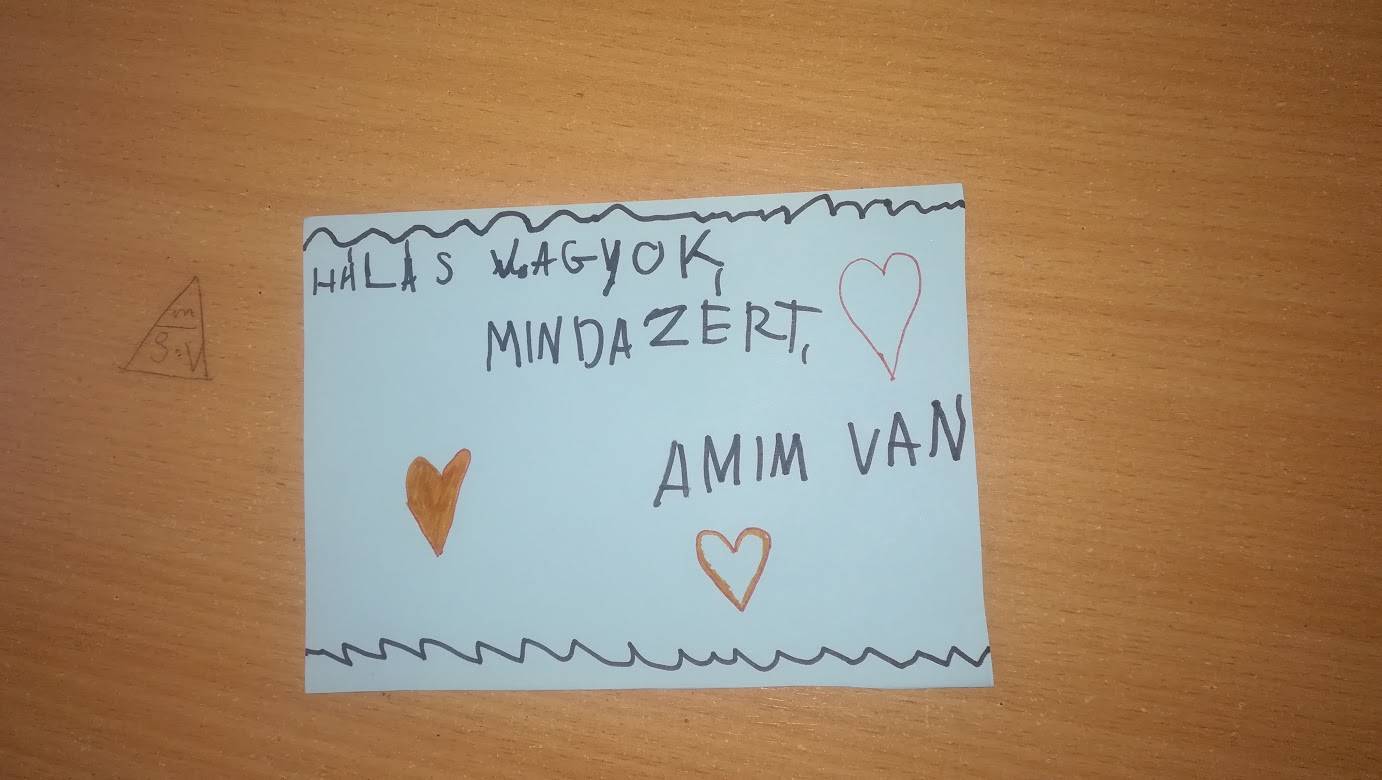 HÁLÁS VAGYOK,
MINDAZÉRT,
AMIM VAN
m
S·V